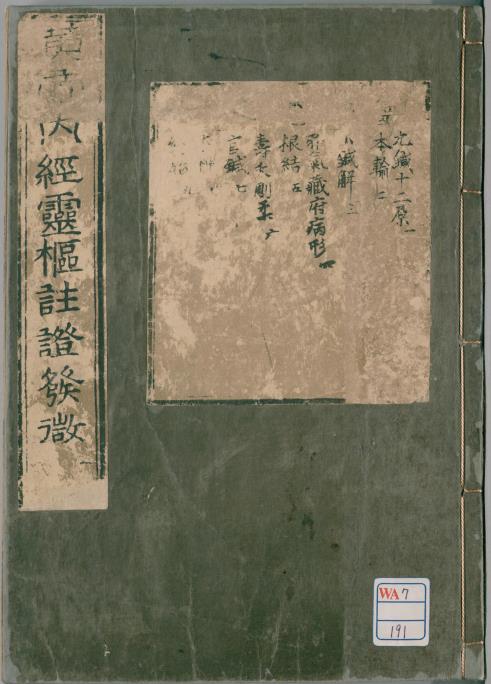 黃帝內經靈樞註證發微
九鍼十二原一
本輸二
鍼解三
邪氣藏府病形四
根結五
壽夭剛柔六
官鍼七
WA 7
191